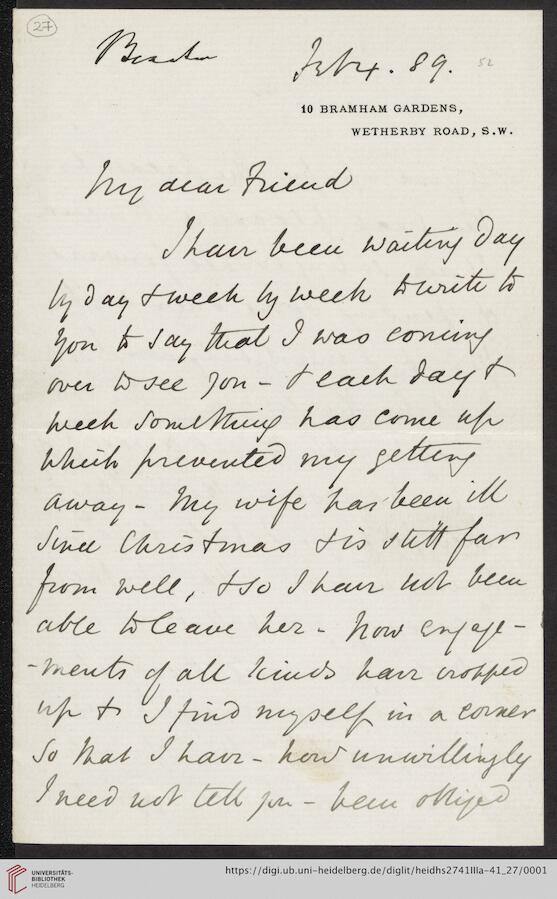 27
Feb 4. 89.
52
10 BRAMHAM GARDENS,
WETHERBY ROAD, S.W.
My dear Friend
I have been waiting day
by day & week by week to write to
you to say that I was coming
over to see you - & each day &
week something has come up
which prevented my getting
away - My wife has been ill
since Christmas & is still far
from well, & so I have not been
able to leave her - Now engage-
-ments of all kinds have cropped
up & I find myself in a corner
so that I have - how unwillingly
I need not tell you - been obliged
UNIVERSITÄTS-
BIBLIOTHEK
HEIDELBERG
https://digi.ub.uni-heidelberg.de/diglit/heidhs2741IIIa-41_27/0001